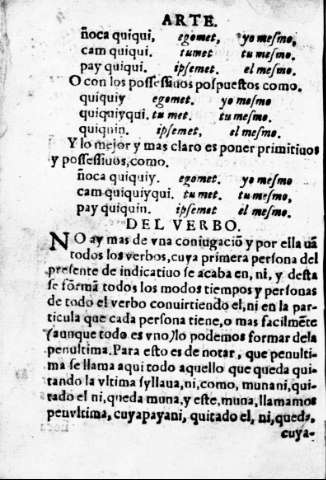 ARTE.
ñoca quiqui, egomet, yo mesmo,
cam quiqui. tumet tu mesmo.
pay quiqui. ipsemet. el mesmo.
O con los possessiuos pospuestos como.
quiquiy egomet. yo mesmo
quiquiyqui. tu met. tu mesmo.
quiquin. ipsemet, el mesmo.
Y lo mejor y mas claro es poner primitiuos
y possessiuos, como.
ñoca quiquiy. egomet. yo mesmo
cam quiquiyqui. tu met. tu mesmo.
pay quiquin. ipsemet el mesmo.
DEL VERBO.
NO ay mas de vna conjugaciõ y por ella uã
todos los verbos, cuya primera persona del
presente de indicatiuo se acaba en, ni, y desta
se formã todos los modos tiempos y personas
de todo el verbo conuirtiendo el, ni en la par-
ticula que cada persona tiene, o mas facilmẽte
(aunque todo es vno) lo podemos formar dela
penultima. Para esto es de notar, que penulti-
ma se llama aqui todo aquello que queda qui-
tando la vltima syllaua, ni, como, munani, qui-
tado el ni, queda muna, y este, muna, llamamos
penultima, cuyapayani, quitado el, ni, queda,
cuya-